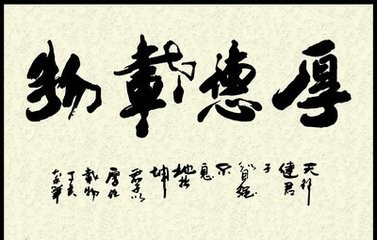 厚德載物
天行
健君
子
以自强
不
息
地势
坤
君子以
厚德
載物
丁亥